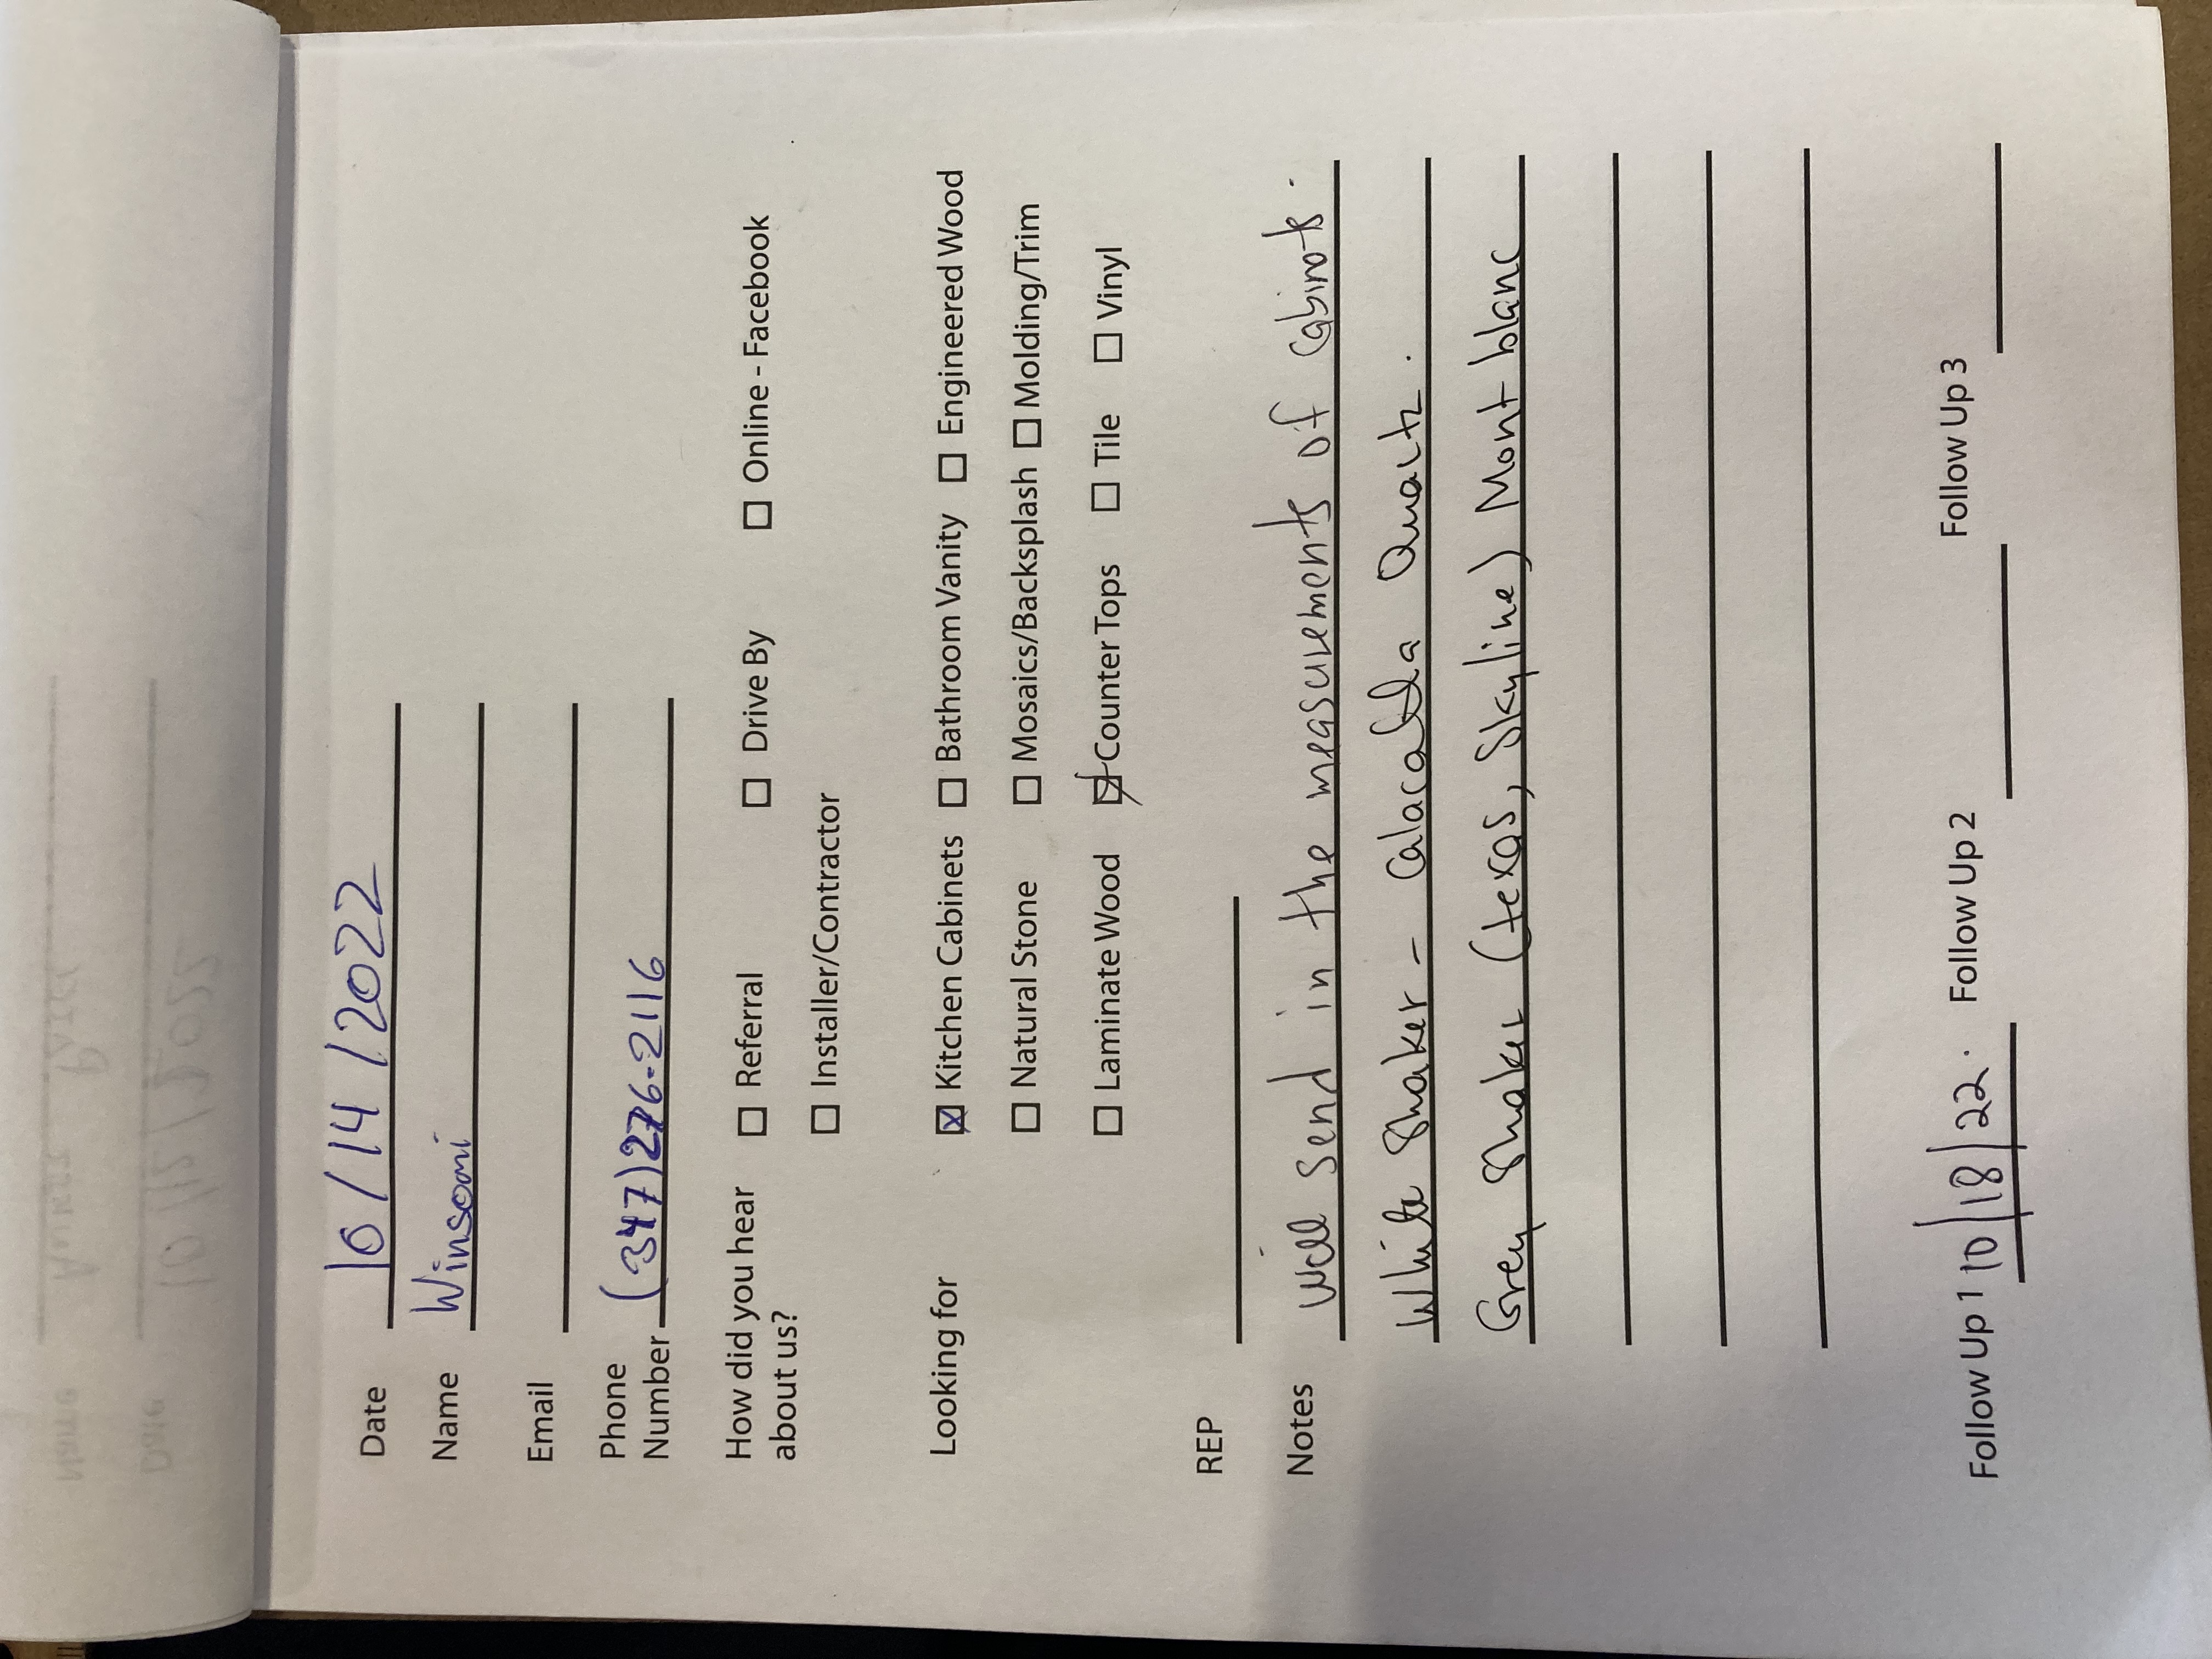 Date 10/14/2022
Name Winsomi
Email
Phone
Number (347) 276-2116
How did you hear
about us?
☐ Referral ☐ Drive By ☐ Online - Facebook
☐ Installer/Contractor
Looking for ☒ Kitchen Cabinets ☐ Bathroom Vanity ☐ Engineered Wood
☐ Natural Stone ☐ Mosaics/Backsplash ☐ Molding/Trim
☐ Laminate Wood ☑ Counter Tops ☐ Tile ☐ Vinyl
REP
Notes will send in the measurements of cabinets.
White Shaker - Calacatta Quartz.
Grey Shaker (texas, Skyline) Mont blanc
Follow Up 1 10/18/22. Follow Up 2 Follow Up 3